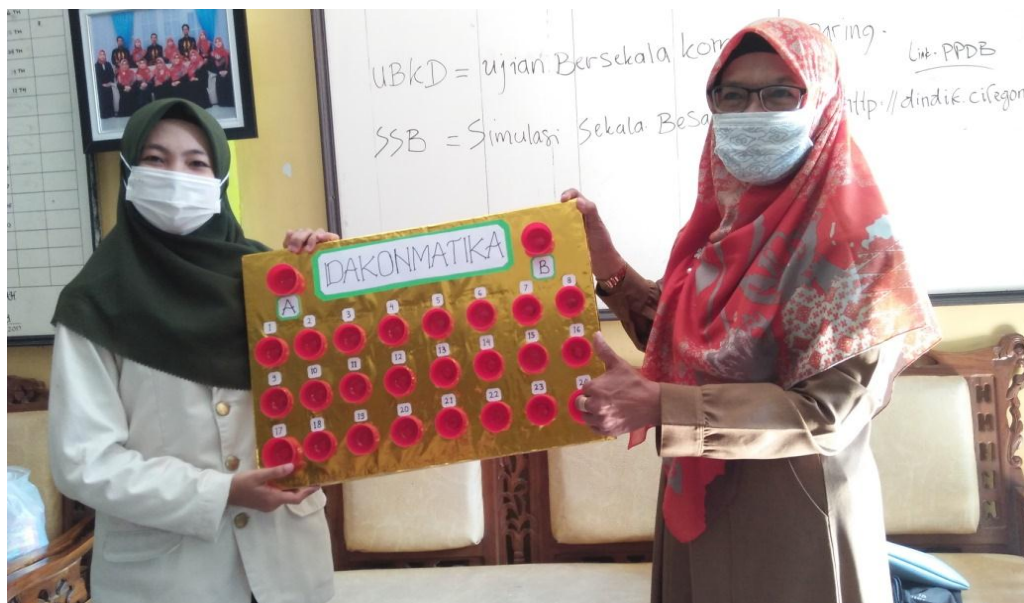 UBKD = Ujian Bersekala kom aring.
SSB = Simulasi Sekala Besa
Link. PPDB
http://dindik.cilegon
DAKONMATIKA
A
B
1 2 3 4 5 6 7 8
9 10 11 12 13 14 15 16
17 18 19 20 21 22 23